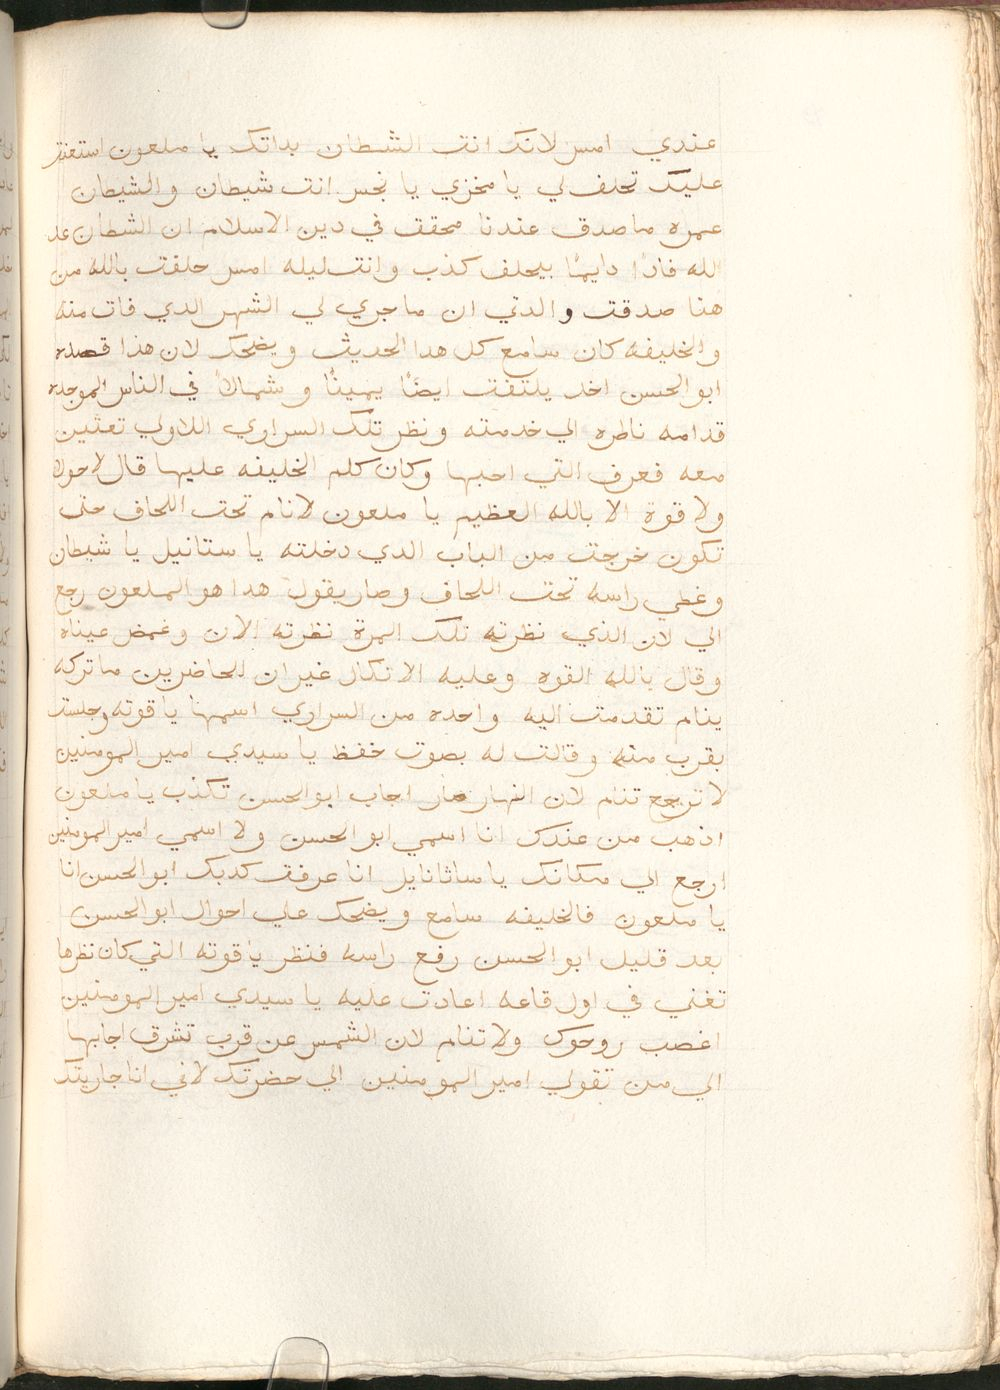 عندي امس لانك انت الشطان بداتك يا ملعون استغنت
عليك تحلف لي يا مخزي يا نجس انت شيطان والشيطان
عمره ماصدق عندنا محقق في دين الاسلام ان الشطان عد
لله فاذًا دايمًا بيحلف كذب وانت ليله امس حلفت بالله من
هنا صدقت والدتي ان ماجري لي الشهر الدي فات منه
والخليفه كان سامع كل هدا الحديث ويضحك لان هذا قصده
ابو الحسن اخد يلتفت ايضًا يمينًا وشمالاً في الناس الموجده
قدامه ناطره الي خدمته ونظر تلك السراري اللاولي تعثين
معه فعرف التي احبها وكان كلم الخليفه عليها قال لاحول
ولا قوة الا بالله العظيم يا ملعون لانام تحت اللحاف حتي
تكون خرجت من الباب الدي دخلته يا ستانيل يا شيطان
وغطي راسه تحت اللحاف وصار يقول هدا هو الملعون رجع
الي لان الذي نظرته تلك المرة نظرته الان وغمض عيناه
وقال بالله القوه وعليه الاتكال غير ان الحاضرين ماتركه
ينام تقدمت اليه واحده من السراري اسمها ياقوته وجلست
بقرب منه وقالت له بصوت خفظ يا سيدي امير المومنين
لا ترجع تنام لان النهار صار اجاب ابو الحسن تكذب يا ملعون
اذهب من عندك انا اسمي ابو الحسن ولا اسمي امير المومنين
ارجع الي مكانك يا ساثانايل انا عرفت كدبك ابو الحسن انا
يا ملعون فالخليفه سامع ويضحك علي احوال ابو الحسن
بعد قليل ابو الحسن رفع راسه فنظر ياقوته التي كان نظرها
تغني في اول قاعه اعادت عليه يا سيدي امير المومنين
اغصب روحوك ولا تنام لان الشمس عن قرب تشرق اجابها
الي من تقولي امير المومنين الي حضرتك لاني انا جاريتك